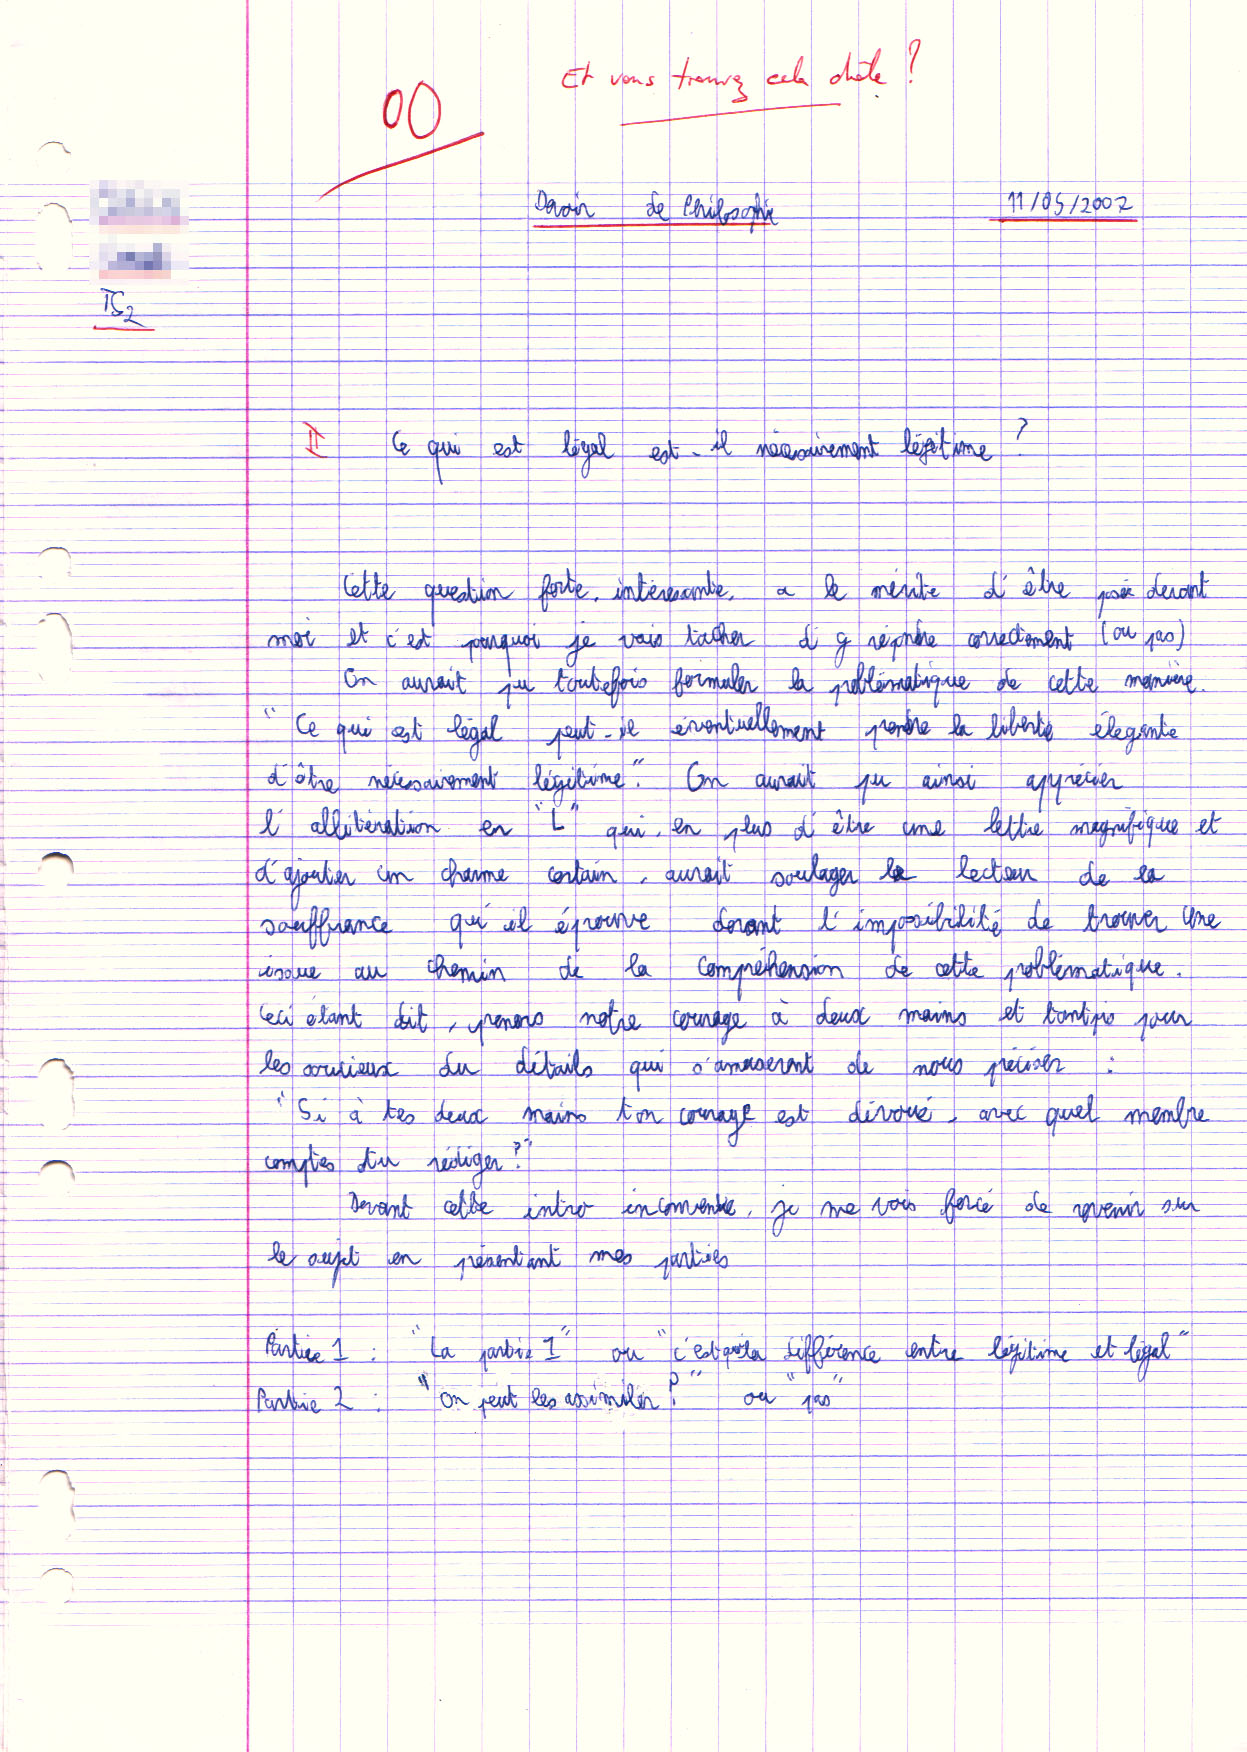 Et vous trouvez cela drôle ?
00
Devoir de Philosophie
11/05/2007
TS2
II Ce qui est légal est-il nécessairement légitime ?
Cette question forte, intéressante, a le mérite d'être posée devant
moi et c'est pourquoi je vais tacher d'y répndre correctement (ou pas)
On aurait pu toutefois formuler la problématique de cette manière.
"Ce qui est légal peut-il éventuellement prendre la liberté élégante
d'être nécessairement légitime". On aurait pu ainsi apprécier
l'allitération en "L" qui, en plus d'être une lettre magnifique et
d'ajouter un charme certain, aurait soulager le lecteur de la
souffrance qu'il éprouve devant l'impossibilité de trouver une
issue au chemin de la compréhension de cette problématique.
Ceci étant dit, prenons notre courage à deux mains et tantpis pour
les soucieux du détails qui s'amuseront de nous préciser :
"Si à tes deux mains ton courage est dévoué, avec quel membre
comptes tu rédiger ?"
Devant cette intro je me vois forcé de revenir sur
le sujet en présentant mes parties
Partie 1 : "La partie 1" ou "c'est quoi la différence entre légitime et légal"
Partie 2 : "On peut les assimiler ?" ou "pas"